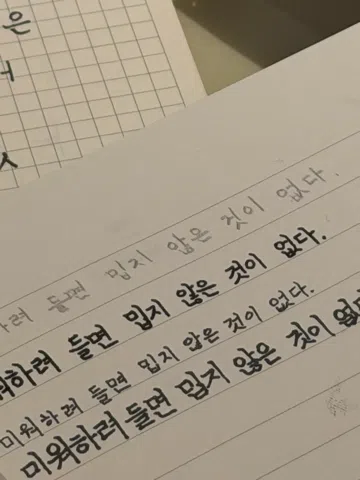 은
하려 들면 밉지 않은 것이 없다.
워하려 들면 밉지 않은 것이 없다.
미워하려 들면 밉지 않은 것이 없다.
미워하려 들면 밉지 않은 것이 없